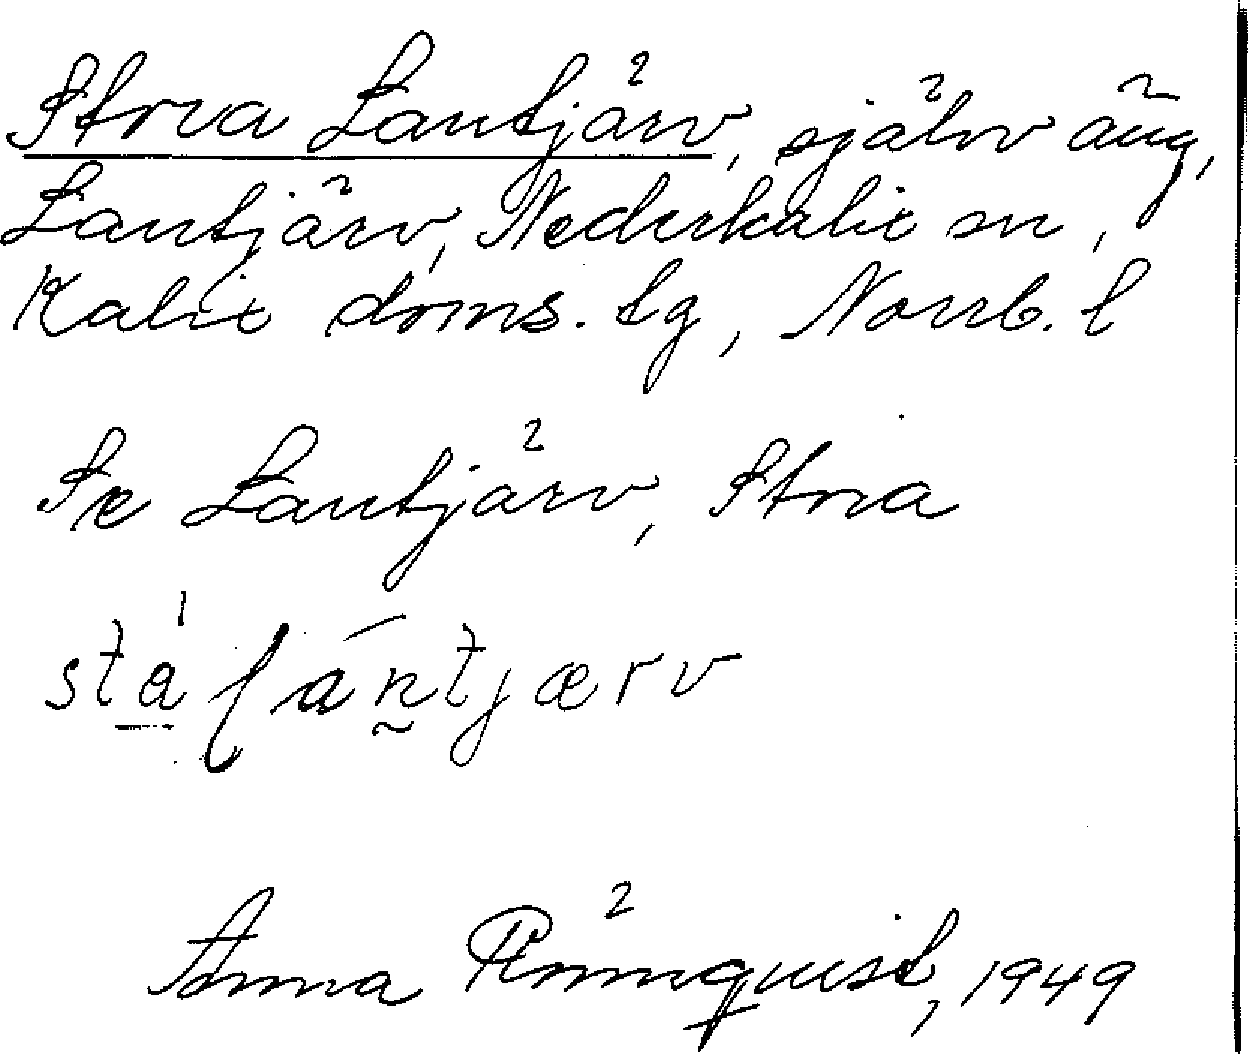 Stora Lantjärv, själväng,
Lantjärv, Nederkalix sn,
Kalix doms. tg, Norrb. l
Se Lantjärv, Stora
Anna Rönnquist, 1949